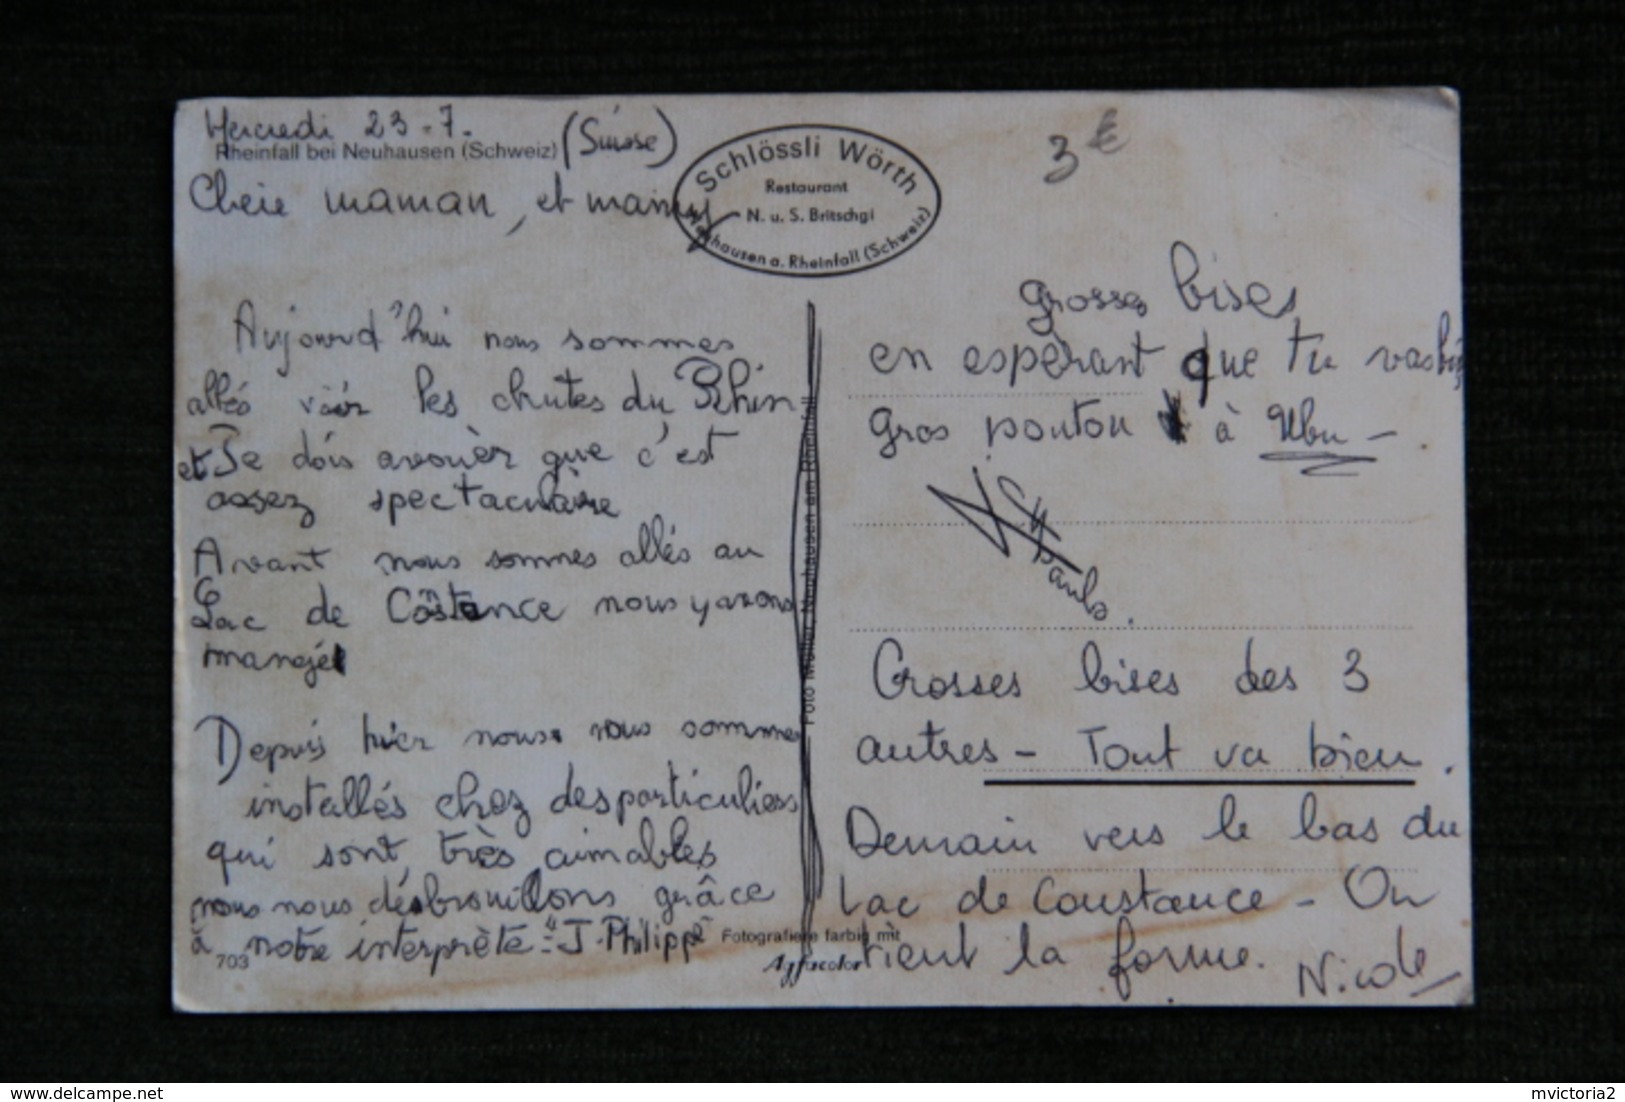 Mercredi 23-7.
Rheinfall bei Neuhausen (Schweiz) (Suisse)
Chère maman, et mamy
Schlössli Wörth
Restaurant
N. u. S. Britschgi
Neuhausen a. Rheinfall (Schweiz)
3€
Aujourd'hui nous sommes
allés voir les chutes du Rhin
et Je dois avouèr que c'est
assez spectaculaire
Avant nous sommes allés au
Lac de Constance nous y avons
mangé
Depuis hier nous nous sommes
installés chez des particuliers
qui sont très aimables
nous nous débrouillons grâce
à notre interprète "J-Philippe"
703
Foto Müller, Neuhausen am Rheinfall
Fotografiere farbig mit
Agfacolor
grosses bises
en espérant que tu vas
gros pouton à Ubu -
Grosses bises des 3
autres - Tout va bien.
Demain vers le bas du
lac de Constance - On
tient la forme. Nicole
mvictoria2